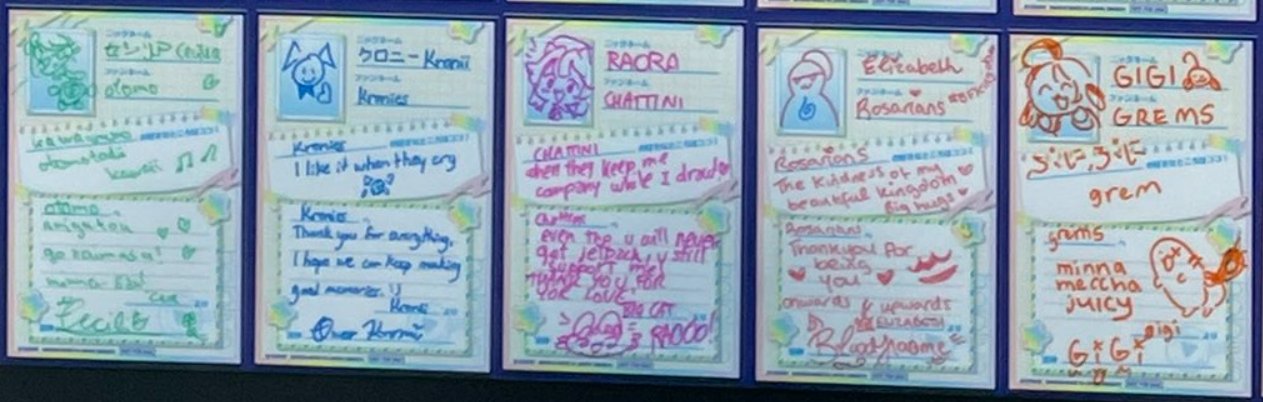 ニックネーム
セシリア Cecilia
ファンネーム
otomo
kawaii
arigatou
gozaimasu!
Cecilia
ニックネーム
クロニー Kronii
ファンネーム
Kronies
Kronies
I like it when they cry
Kronies
Thank you for everything,
I hope we can keep making
good memories. !!
Kronii
Ouro Kronii
ニックネーム
RAORA
ファンネーム
CHATTINI
CHATTINI
when they keep me
company while I draw
Chattini
even tho u will never
get jetpack, u still
support me
THANK YOU FOR
YOR LOVE!
BIG CAT
RAOOO!
ニックネーム
Elizabeth
ファンネーム
Rosarians
Rosarians
The kindness of my
beautiful kingdom
Big hugs
Rosarians
Thankyou for
being
you
onwards & upwards
ELIZABETH
Bloodflame
ニックネーム
GIGI
ファンネーム
GREMS
grem
grems
minna
meccha
juicy
gigi
GiGi